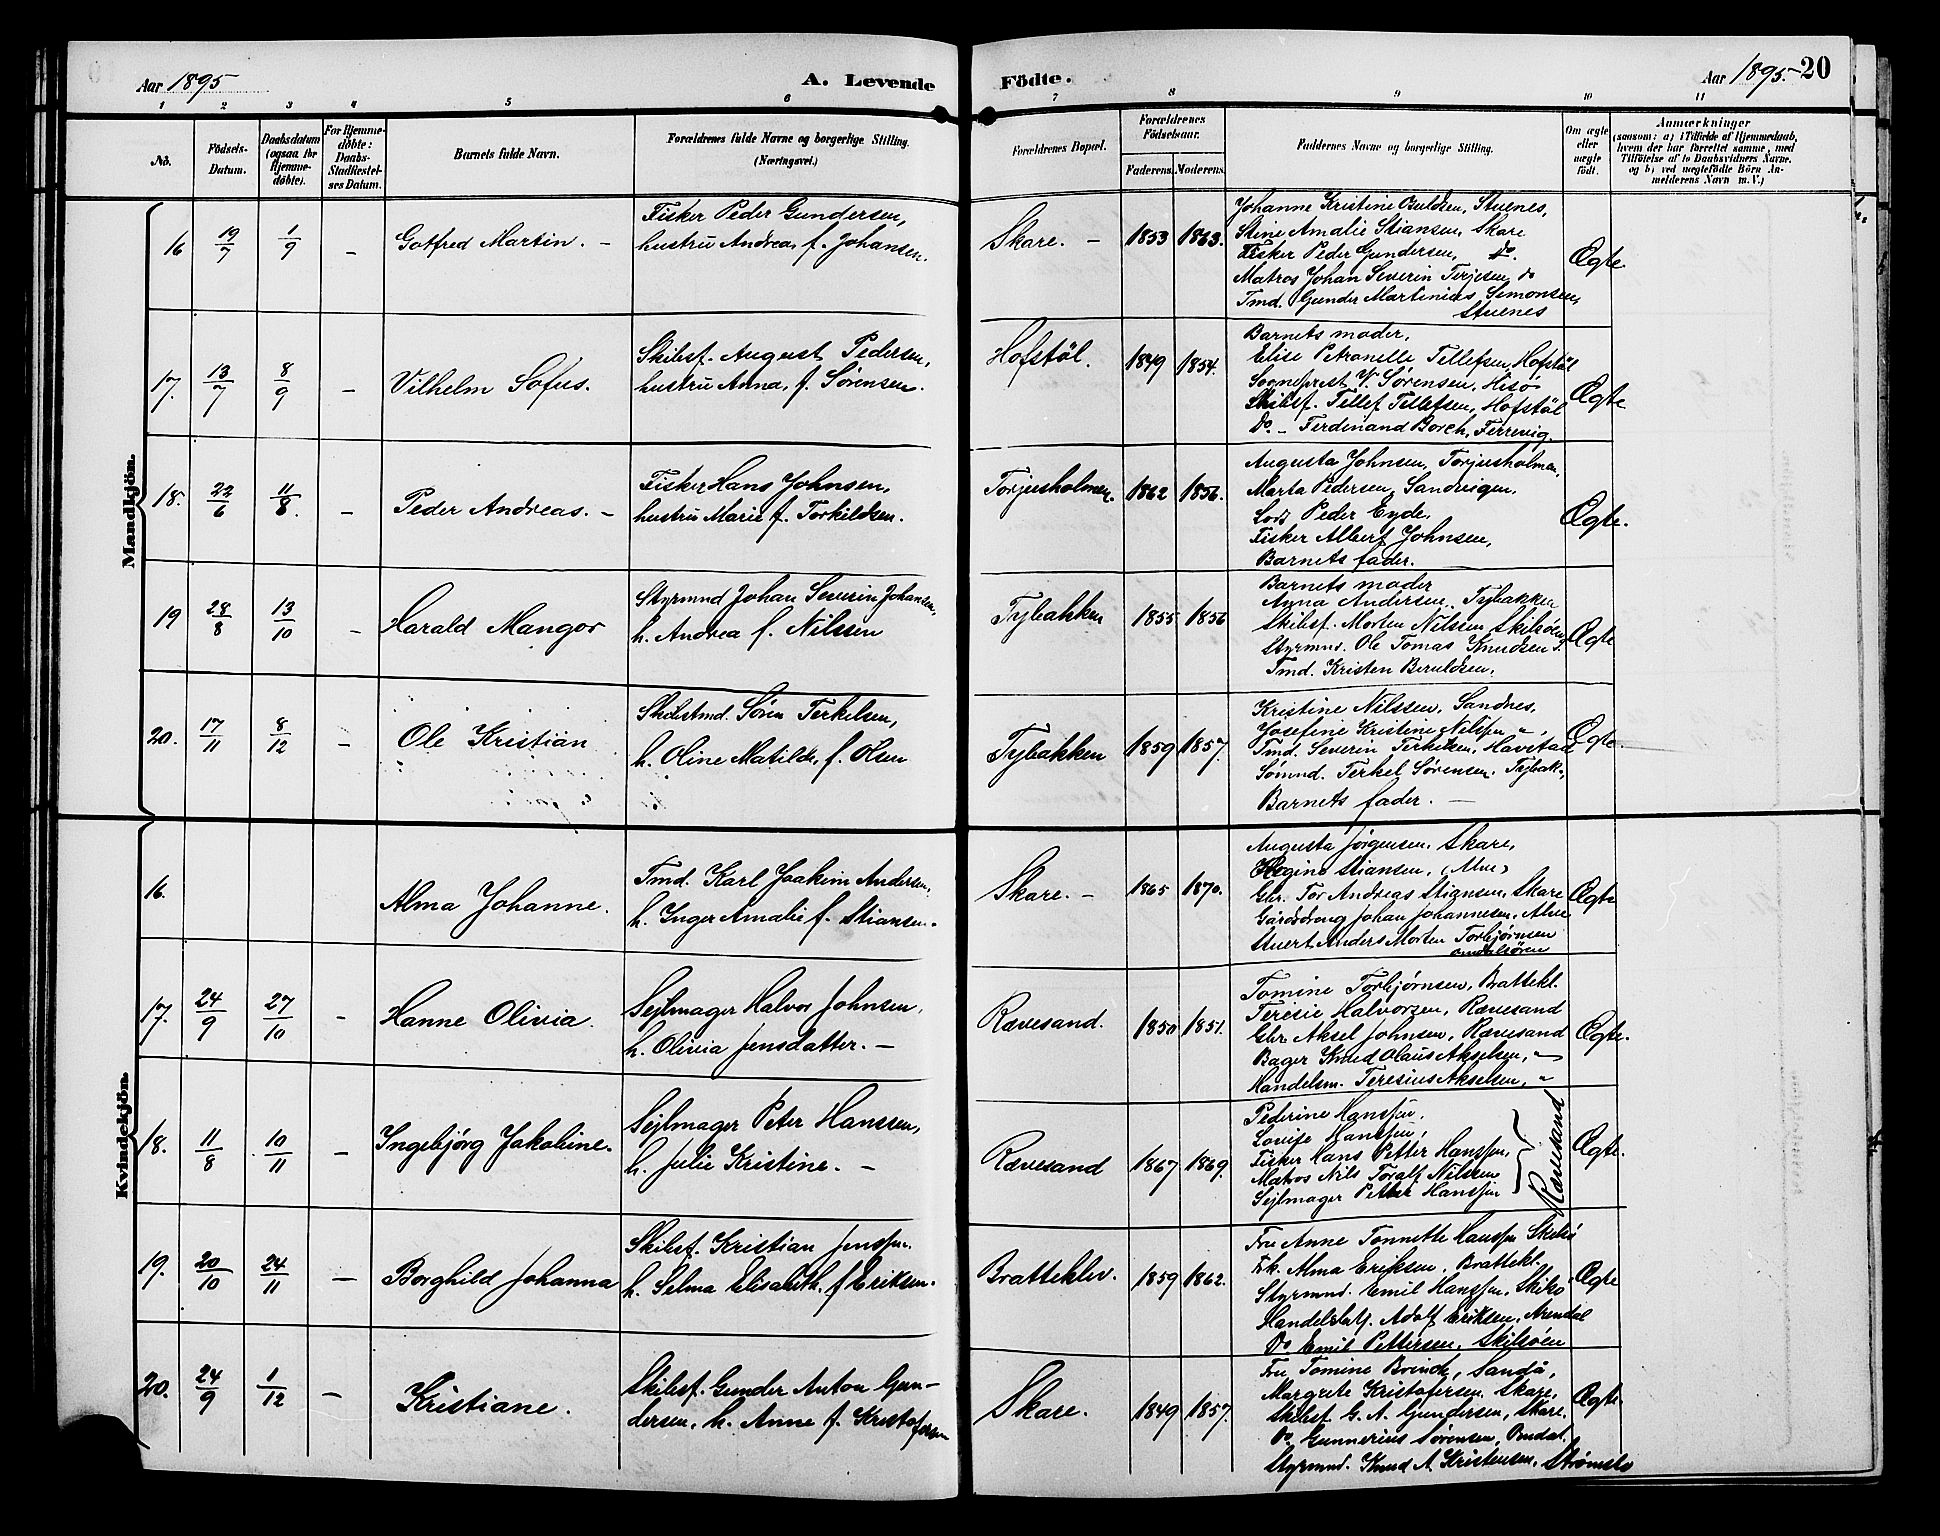 Aar 1895
A. Levende
Födte.
Aar 1895.
20
1 2 3 4 5 6 7 8 9 10 11
No.
Födsels-
Datum.
Daabsdatum
(ogsaa for
Hjemme-
döbte).
For Hjemme-
döbte:
Daabs-
Stadfæstel-
ses Datum.
Barnets fulde Navn.
Forældrenes fulde Navne og borgerlige Stilling.
(Næringsvei.)
Forældrenes Bopæl.
Forældrenes
Födselsaar.
Faderens.
Moderens.
Faddernes Navne og borgerlige Stilling.
Om ægte
eller
uægte
födt.
Anmærkninger
(saasom: a) i Tilfælde af Hjemmedaab,
hvem der har forrettet samme, med
Tilföielse af to Daabsvidners Navne.
og b) ved uægtefödte Börn An-
melderens Navn m. V.)
Mandkjön.
16 19/7 1/9 – Gotfred Martin. –
Fisker Peder Gundersen,
hustru Andrea, f. Johansen.
Skare. – 1853 1863.
Johanne Kristine Stuenes,
Stine Amalie Stiansen, Skare
Fisker Peder Gundersen, do.
Matros Johan Severin Terjesen, do
Tmd. Gunder Martinius Simonsen,
Stuenes
Ægte.
17. 13/7 8/9 – Vilhelm Sofus.
Skibsf. August Pedersen,
hustru Anna, f. Sørensen.
Hofstöl. 1849 1854.
Barnets moder,
Elise Petronelle Tellefsen, Hofstöl
Sogneprest V. Sørensen, Hisö
Skibsf. Tellef Tellefsen, Hofstöl
Do. – Ferdinand Borch, Ferrevig.
Ægte
18. 22/6 11/8. – Peder Andreas. –
Fisker Hans Johnsen,
hustru Marie f. Torkildsen.
Torjusholmen. 1862 1856.
Augusta Johnsen, Torjusholmen,
Marta Pedersen, Sandvigen,
Lods Peder Eyde,
Fisker Albert Johnsen,
Barnets fader.
Ægte.
19 28/8 13/10 – Harald Mangor
Styrmnd Johan Severin Johansen,
h. Andrea f. Nilssen
Tybakken 1855 1856
Barnets moder
Anna Andersen, Tybakken
Skibsf. Morten Nilssen Skilsöen,
Styrmnd. Ole Tomas Knudsen
Tmd. Kristen Beruldsen.
Ægte
20. 17/11 8/12 – Ole Kristian
Skibstmd. Sören Terkelsen,
h. Oline Matilde, f. Olsen
Tybakken 1859 1857.
Kristine Nilssen, Sandnes,
Josefine Kristine Nilssen "
Tmd. Severin Terkelsen, Havstad
Sømnd. Terkel Sørensen, Tybak.,
Barnets fader. –
Ægte.
Kvindekjön.
16. Alma Johanne.
Tmd. Karl Joakim Andersen,
h. Inger Amalie f. Stiansen.
Skare. – 1865 1870.
Augusta Jörgensen, Skare,
Regine Stiansen, (Alve)
Gbr. Tor Andreas Stiansen, Skare
Gårddreng Johan Johannesen, Alve
Stuert Anders Morten Torbjørnsen
Ægte
17. 24/9 27/10 – Hanne Olivia.
Sejlmager Halvor Johnsen,
h. Olivia Jensdatter. –
Rævesand. 1850 1851.
Tomine Torbjørnsen, Brattekl.
Teresie Halvorsen, Rævesand
Gbr Aksel Johnsen, Rævesand
Bager Knud Olaus Akselsen, "
Handelsm. Teresius Akselsen, "
Ægte.
18. 11/8 10/11 – Ingebjörg Jakobine.
Sejlmager Peter Hanssen,
h. Julie Kristine. –
Rævesand 1867 1869.
Pederine Hanssen,
Lovise Hanssen,
Fisker Hans Petter Hanssen,
Matros Nils Toralf Nilssen
Sejlmager Petter Hanssen
Rævesand
Ægte.
19. 20/10 24/11 – Borghild Johanna
Skibsf. Kristian Jenssen.
h. Selma Elisabeth. f Eriksen.
Bratteklev. 1859 1862.
Fru Anne Tonnette Hanssen Skilsö
Frk. Alma Eriksen, Brattekl.
Styrmnd. Emil Hanssen, Skilsö
Handelsbetj. Adolf Eriksen, Arendal
Do. Emil Pettersen, Skilsöen
Ægte
20. 24/9 1/12 – Kristiane.
Skibsf. Gunder Anton Gun-
dersen, h. Anne f. Kristofersen
Skare. 1849 1857.
Fru Tomine Sandå,
Margrete Kristofersen, Skare,
Skibsf G. A. Gundersen, Skare.
Do. Gunnerius Sørensen,
Styrmnd. Knud A. Kristensen, Strömsbo
Ægte.